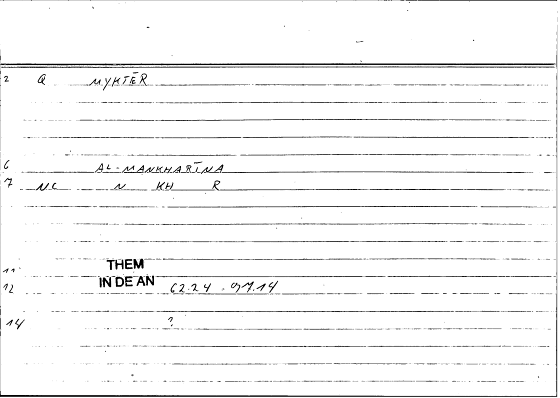 2 Q MYKTĒR
6 AL-MANKHARĪNA
7 NC N KH R
11 THEM
12 IN DE AN 62.24 . 97.14
14 ?